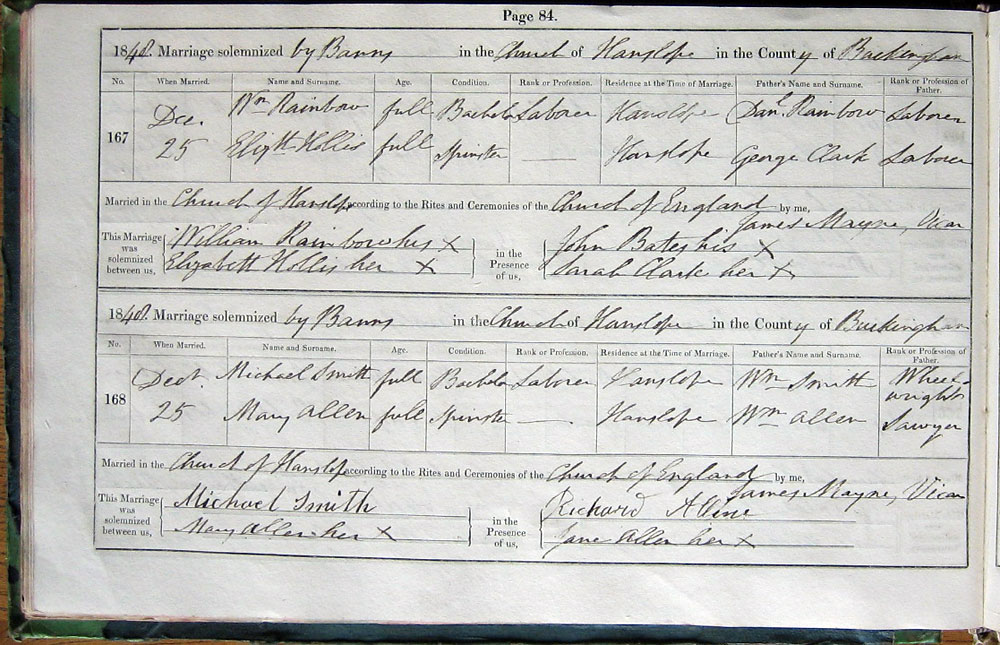 Page 84.
1848. Marriage solemnized by Banns in the Church of Hanslope in the County of Buckingham
No. When Married. Name and Surname. Age. Condition. Rank or Profession. Residence at the Time of Marriage. Father's Name and Surname. Rank or Profession of Father.
167 Dec. Wm Rainbow full Bachelor Laborer Hanslope Danl. Rainbow Laborer
25 Elizth Hollis full Spinster — Hanslope George Clark Laborer
Married in the Church of Hanslope according to the Rites and Ceremonies of the Church of England by me,
James Mayne, Vicar
This Marriage was solemnized between us, William Rainbow his X in the Presence of us, John Bates his X
Elizabeth Hollis her X Sarah Clark her X
1848. Marriage solemnized by Banns in the Church of Hanslope in the County of Buckingham
No. When Married. Name and Surname. Age. Condition. Rank or Profession. Residence at the Time of Marriage. Father's Name and Surname. Rank or Profession of Father.
168 Decr. Michael Smith full Bachelor Laborer Hanslope Wm Smith Wheelwright
25 Mary Allen full Spinster — Hanslope Wm Allen Sawyer
Married in the Church of Hanslope according to the Rites and Ceremonies of the Church of England by me,
James Mayne, Vicar
This Marriage was solemnized between us, Michael Smith in the Presence of us, Richard
Mary Allen her X Jane Allen her X